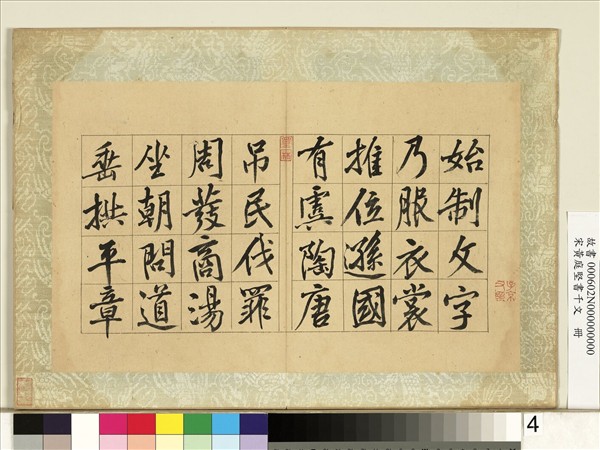 始制文字
乃服衣裳
推位遜國
有虞陶唐
吊民伐罪
周發商湯
坐朝問道
垂拱平章
故書 000602N000000000
宋黃庭堅書千文 冊
4